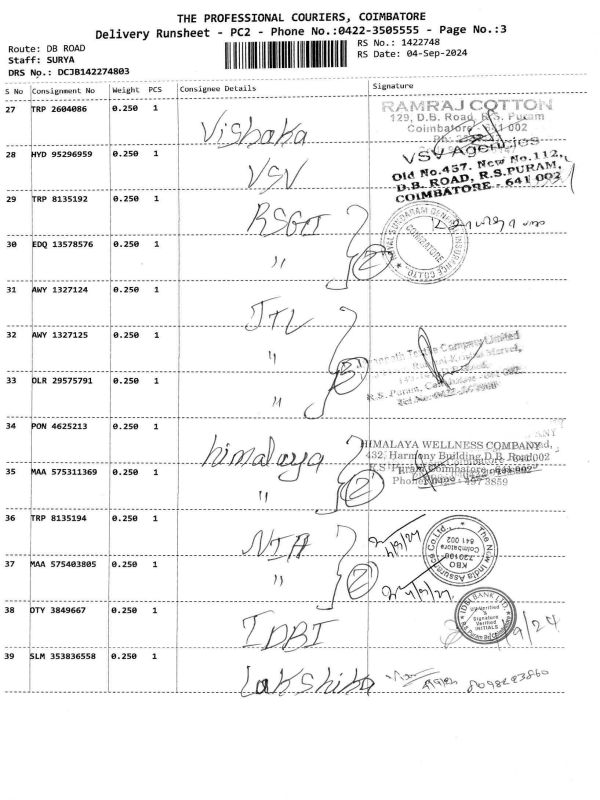 THE PROFESSIONAL COURIERS, COIMBATORE
Delivery Runsheet - PC2 - Phone No.:0422-3505555 - Page No.:3
Route: DB ROAD
Staff: SURYA
DRS No.: DCJB142274803
RS No.: 1422748
RS Date: 04-Sep-2024
S No Consignment No Weight PCS Consignee Details Signature
27 TRP 2604086 0.250 1 Vishaka
RAMRAJ COTTON
129, D.B. Road, R.S. Puram
Coimbatore - 641 002
28 HYD 95296959 0.250 1 VSV
VSV Agencies
Old No.457. New No.112,
D.B. ROAD, R.S.PURAM,
COIMBATORE - 641 002
29 TRP 8135192 0.250 1 RSGI
30 EDQ 13578576 0.250 1 " 2
COIMBATORE
31 AWY 1327124 0.250 1 JTL
32 AWY 1327125 0.250 1 "
33 DLR 29575791 0.250 1 " 3
Company Limited
R.S. Puram,
34 PON 4625213 0.250 1 himalaya
HIMALAYA WELLNESS COMPANY
432, Harmony Building, D.B. Road,
35 MAA 575311369 0.250 1 " 2
36 TRP 8135194 0.250 1 NIA
4/9/24
The New India Assurance Co.Ltd.,
KBO
720100
Coimbatore
641 002
37 MAA 575403805 0.250 1 " 2
38 DTY 3849667 0.250 1 IDBI
IDBI BANK LTD.
Signature
Verified
INITIALS
/9/24
39 SLM 353836558 0.250 1 Lakshika